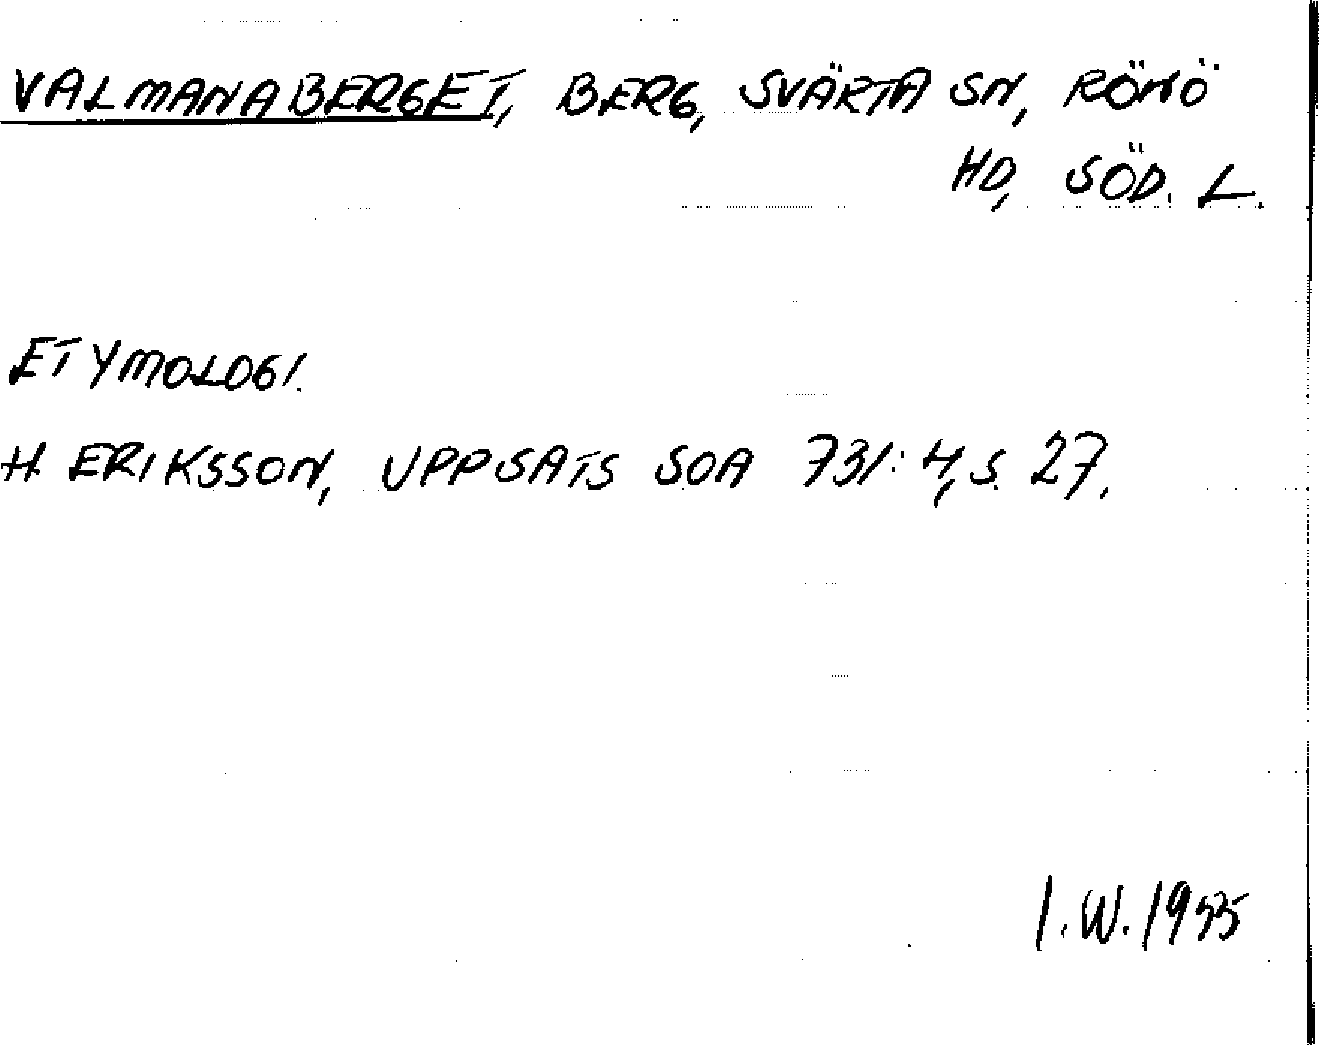 VALMANABERGET, BERG, SVÄRTA SN, RÖNÖ
HD, SÖD. L.
ETYMOLOGI.
H. ERIKSSON, UPPSATS SOA 731:4, S. 27.
I.W. 1955